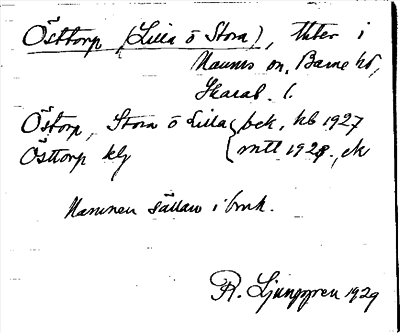 Östtorp (Lilla o Stora), tuter i
Naums sn, Barne hd,
Skarab. l.
Östorp, Stora o Lilla } bek, kb 1927
Östtorp klg } mtl 1928, ek
Namnen sällan i bruk.
R. Ljunggren 1929